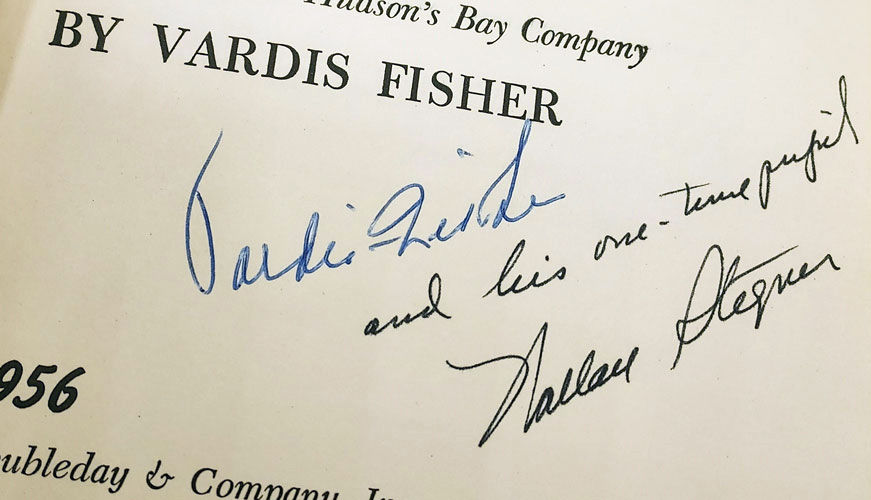 Hudson's Bay Company
BY VARDIS FISHER
Vardis Fisher
and his one-time pupil
Wallace Stegner
956
oubleday & Company, In